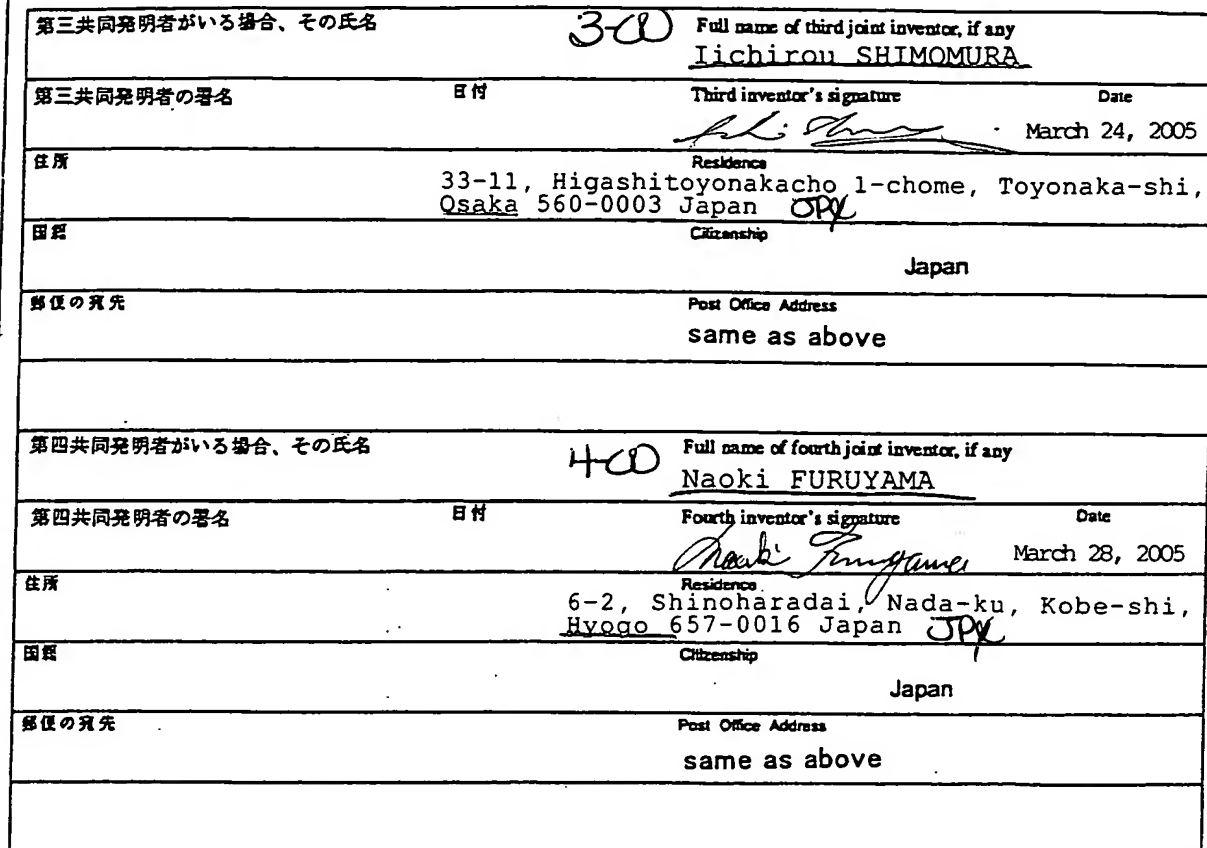 第三共同発明者がいる場合、その氏名 3-00 Full name of third joint inventor, if any
Iichirou SHIMOMURA
第三共同発明者の署名 日付 Third inventor's signature Date
March 24, 2005
住所 Residence
33-11, Higashitoyonakacho 1-chome, Toyonaka-shi,
Osaka 560-0003 Japan JPX
国籍 Citizenship
Japan
郵便の宛先 Post Office Address
same as above
第四共同発明者がいる場合、その氏名 4-00 Full name of fourth joint inventor, if any
Naoki FURUYAMA
第四共同発明者の署名 日付 Fourth inventor's signature Date
Naoki Furuyama March 28, 2005
住所 Residence
6-2, Shinoharadai, Nada-ku, Kobe-shi,
Hyogo 657-0016 Japan JPX
国籍 Citizenship
Japan
郵便の宛先 Post Office Address
same as above